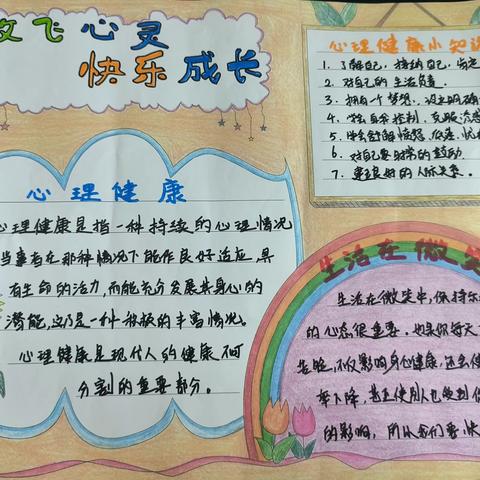 放飞心灵
快乐成长
心理健康
心理健康是指一种持续的心理情况
当事者在那种情况下能作良好适应，具
有生命的活力，而能充分发展其身心的
潜能，这乃是一种积极的丰富情况。
心理健康是现代人的健康不可
分割的重要部分。
心理健康小知识
1. 了解自己，接纳自己，
2. 对自己的生活负责。
3. 拥有一个梦想，设立明确
4. 学会自我控制，克服
5. 学会舒解愤怒、
6. 对自己要时常的鼓励
7. 建立良好的人际关系。
生活在微笑
生活在微笑中，保持乐
的心态很重要，
苦脸，不仅影响身心健康，还会使
率下降，甚至使别人也受到
的影响，所以我们要快